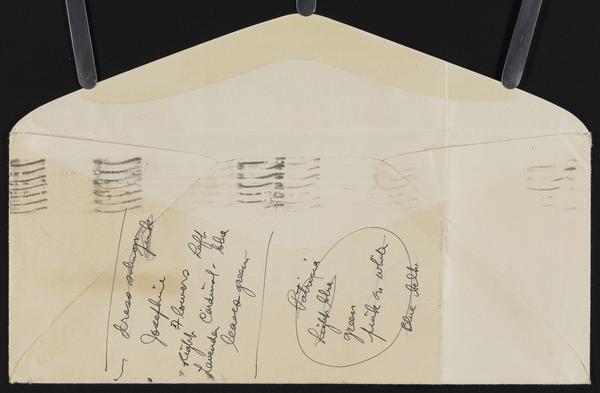 dress salmon pink
Josephine
Flowers left
Right
Lavender Cardinal - blue
leaves green
Patricia
Light blue
green
pink or white
Blue